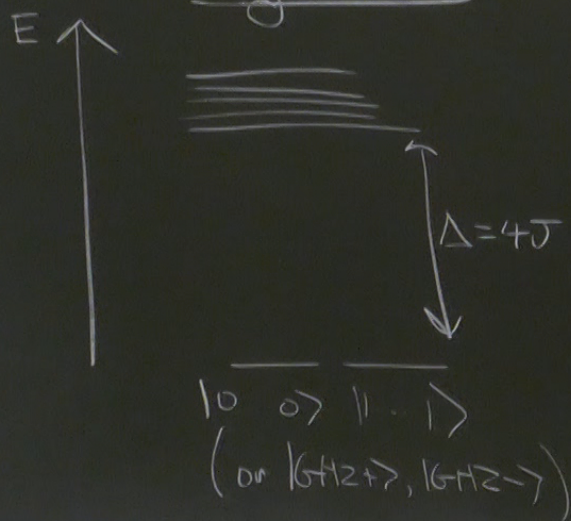 E
Δ=4J
|0 0⟩ |1 .. 1⟩
(or |GHZ+⟩, |GHZ-⟩)